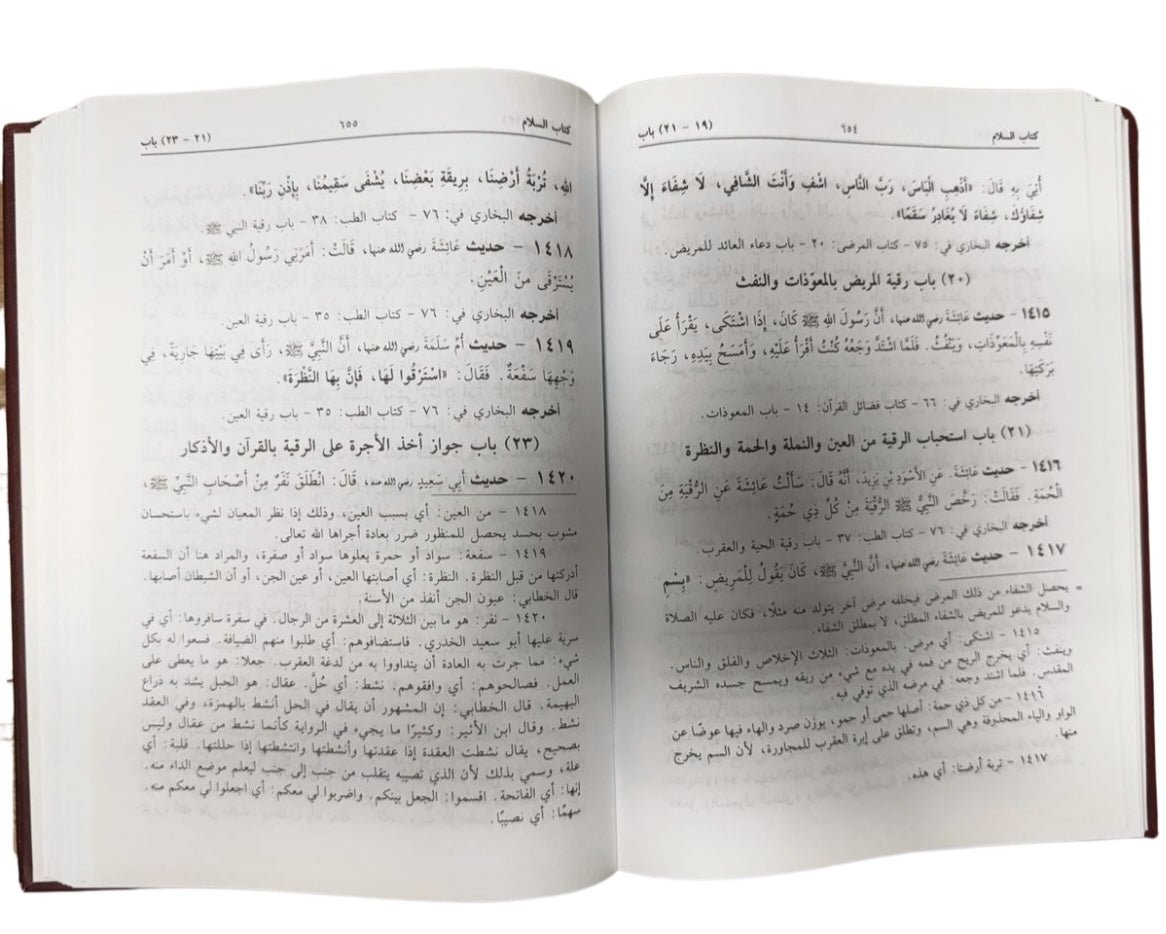 كتاب السلام ٦٥٤ (١٩ - ٢١) باب
أُتِيَ بِهِ قَالَ: «أَذْهِبِ الْبَاسَ، رَبَّ النَّاسِ، اشْفِ وَأَنْتَ الشَّافِي، لَا شِفَاءَ إِلَّا
شِفَاؤُكَ، شِفَاءً لَا يُغَادِرُ سَقَمًا».
أخرجه البخاري في: ٧٥ - كتاب المرضى: ٢٠ - باب دعاء العائد للمريض.
(٢٠) باب رقية المريض بالمعوّذات والنفث
١٤١٥ - حديث عَائِشَةَ رضي الله عنها، أَنَّ رَسُولَ اللهِ ﷺ كَانَ، إِذَا اشْتَكَى، يَقْرَأُ عَلَى
نَفْسِهِ بِالْمَعَوِّذَاتِ، وَيَنْفُثُ. فَلَمَّا اشْتَدَّ وَجَعُهُ كُنْتُ أَقْرَأُ عَلَيْهِ، وَأَمْسَحُ بِيَدِهِ، رَجَاءَ
بَرَكَتِهَا.
أخرجه البخاري في: ٦٦ - كتاب فضائل القرآن: ١٤ - باب المعوذات.
(٢١) باب استحباب الرقية من العين والنملة والحمة والنظرة
١٤١٦ - حديث عَائِشَةَ. عَنِ الأَسْوَدِ بْنِ يَزِيدَ، أَنَّهُ قَالَ: سَأَلْتُ عَائِشَةَ عَنِ الرُّقْيَةِ مِنَ
الْحُمَةِ. فَقَالَتْ: رَخَّصَ النَّبِيُّ ﷺ الرُّقْيَةَ مِنْ كُلِّ ذِي حُمَةٍ.
أخرجه البخاري في: ٧٦ - كتاب الطب: ٣٧ - باب رقية الحية والعقرب.
١٤١٧ - حديث عَائِشَةَ رضي الله عنها، أَنَّ النَّبِيَّ ﷺ، كَانَ يَقُولُ لِلْمَرِيضِ: «بِسْمِ
= يحصل الشفاء من ذلك المرض فيخلفه مرض آخر يتولد منه مثلًا، فكان عليه الصلاة
والسلام يدعو للمريض بالشفاء المطلق، لا بمطلق الشفاء.
١٤١٥ - اشتكى: أي مرض. بالمعوذات: الثلاث الإخلاص والفلق والناس.
وينفث: أي يخرج الريح من فمه في يده مع شيء من ريقه ويمسح جسده الشريف
المقدس. فلما اشتد وجعه: في مرضه الذي توفي فيه.
١٤١٦ - من كل ذي حمة: أصلها حمى أو حمو، بوزن صرد والهاء فيها عوضًا عن
الواو والياء المحذوفة وهي السم، وتطلق على إبرة العقرب للمجاورة، لأن السم يخرج
منها.
١٤١٧ - تربة أرضنا: أي هذه.
كتاب السلام ٦٥٥ (٢١ - ٢٣) باب
اللهِ، تُرْبَةُ أَرْضِنَا، بِرِيقَةِ بَعْضِنَا، يُشْفَى سَقِيمُنَا، بِإِذْنِ رَبِّنَا».
أخرجه البخاري في: ٧٦ - كتاب الطب: ٣٨ - باب رقية النبي ﷺ.
١٤١٨ - حديث عَائِشَةَ رضي الله عنها، قَالَتْ: أَمَرَنِي رَسُولُ اللهِ ﷺ، أَوْ أَمَرَ أَنْ
يُسْتَرْقَى مِنَ الْعَيْنِ.
أخرجه البخاري في: ٧٦ - كتاب الطب: ٣٥ - باب رقية العين.
١٤١٩ - حديث أُمِّ سَلَمَةَ رضي الله عنها، أَنَّ النَّبِيَّ ﷺ، رَأَى فِي بَيْتِهَا جَارِيَةً، فِي
وَجْهِهَا سَفْعَةٌ. فَقَالَ: «اسْتَرْقُوا لَهَا، فَإِنَّ بِهَا النَّظْرَةَ».
أخرجه البخاري في: ٧٦ - كتاب الطب: ٣٥ - باب رقية العين.
(٢٣) باب جواز أخذ الأجرة على الرقية بالقرآن والأذكار
١٤٢٠ - حديث أَبِي سَعِيدٍ رضي الله عنه، قَالَ: انْطَلَقَ نَفَرٌ مِنْ أَصْحَابِ النَّبِيِّ ﷺ،
١٤١٨ - من العين: أي بسبب العين، وذلك إذا نظر المعيان لشيء باستحسان
مشوب بحسد يحصل للمنظور ضرر بعادة أجراها الله تعالى.
١٤١٩ - سفعة: سواد أو حمرة يعلوها سواد أو صفرة، والمراد هنا أن السفعة
أدركتها من قبل النظرة. النظرة: أي أصابتها العين، أو عين الجن، أو أن الشيطان أصابها.
قال الخطابي: عيون الجن أنفذ من الأسنة.
١٤٢٠ - نفر: هو ما بين الثلاثة إلى العشرة من الرجال. في سفرة سافروها: أي في
سرية عليها أبو سعيد الخدري. فاستضافوهم: أي طلبوا منهم الضيافة. فسعوا له بكل
شيء: مما جرت به العادة أن يتداووا به من لدغة العقرب. جعلا: هو ما يعطى على
العمل. فصالحوهم: أي وافقوهم. نشط: أي حُلَّ. عقال: هو الحبل يشد به ذراع
البهيمة. قال الخطابي: إن المشهور أن يقال في الحل أنشط بالهمزة، وفي العقد
نشط. وقال ابن الأثير: وكثيرًا ما يجيء في الرواية كأنما نشط من عقال وليس
بصحيح، يقال نشطت العقدة إذا عقدتها وأنشطتها وانتشطتها إذا حللتها. قلبة: أي
علة، وسمي بذلك لأن الذي تصيبه يتقلب من جنب إلى جنب ليعلم موضع الداء منه.
إنها: أي الفاتحة. اقسموا: الجعل بينكم. واضربوا لي معكم: أي اجعلوا لي معكم منه.
سهمًا: أي نصيبًا.